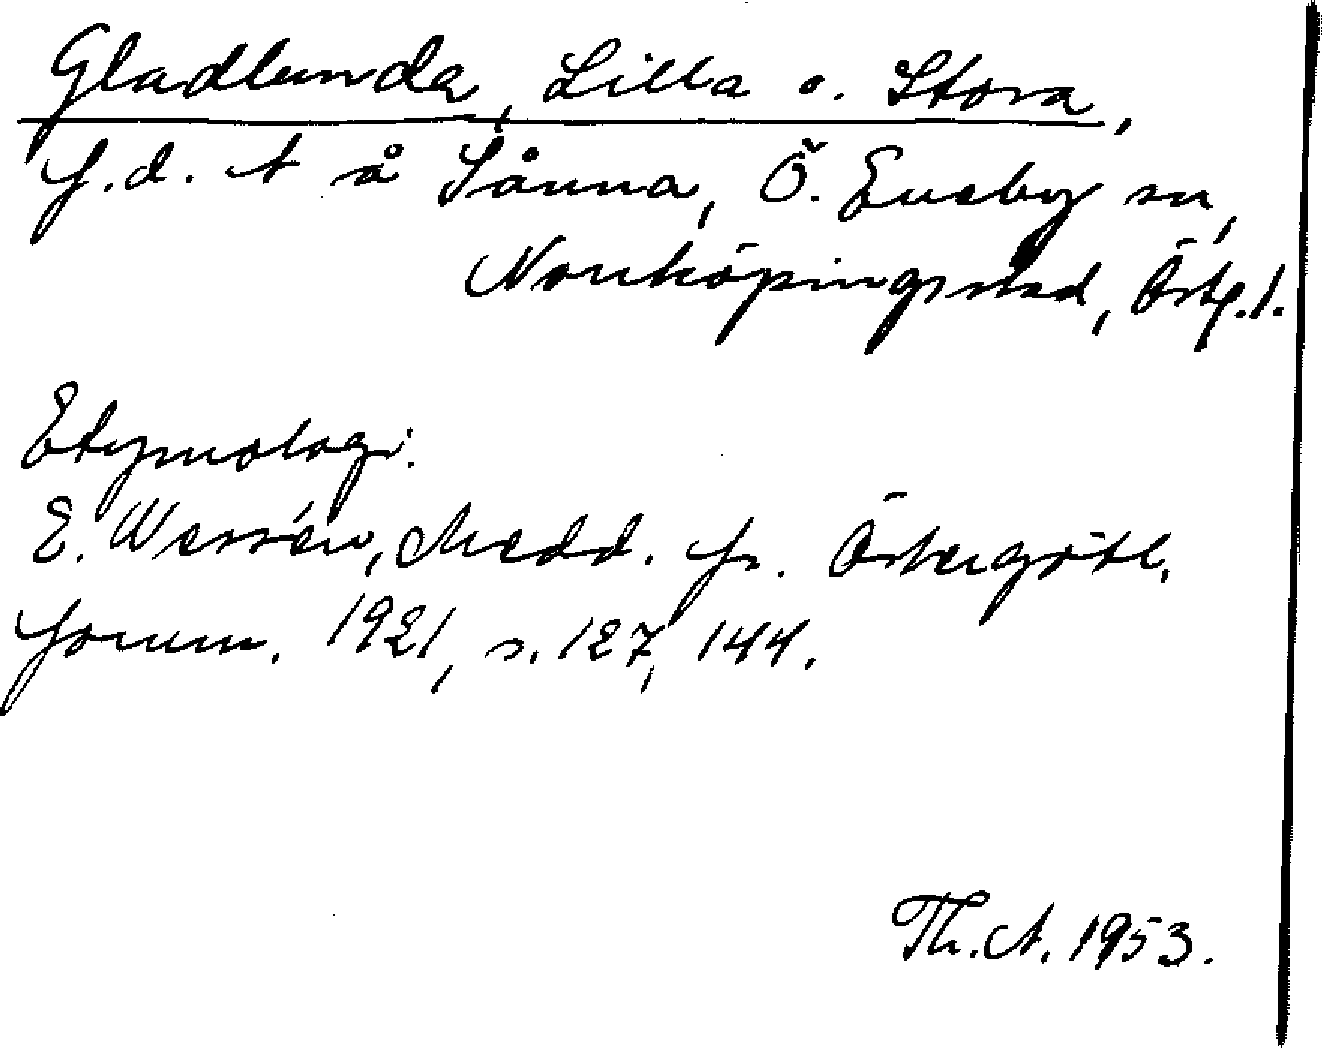 Gladlunda, Lilla o. Stora,
f.d. t å Sånna, Ö. Eneby sn,
Norrköpings stad, Östg. l.
Etymologi.
E. Wessén, Medd. fr. Östergötl.
fornm. 1921, s. 127, 144.
Th. A. 1953.